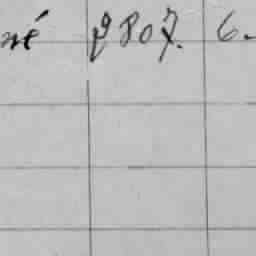 né 2807. 6.